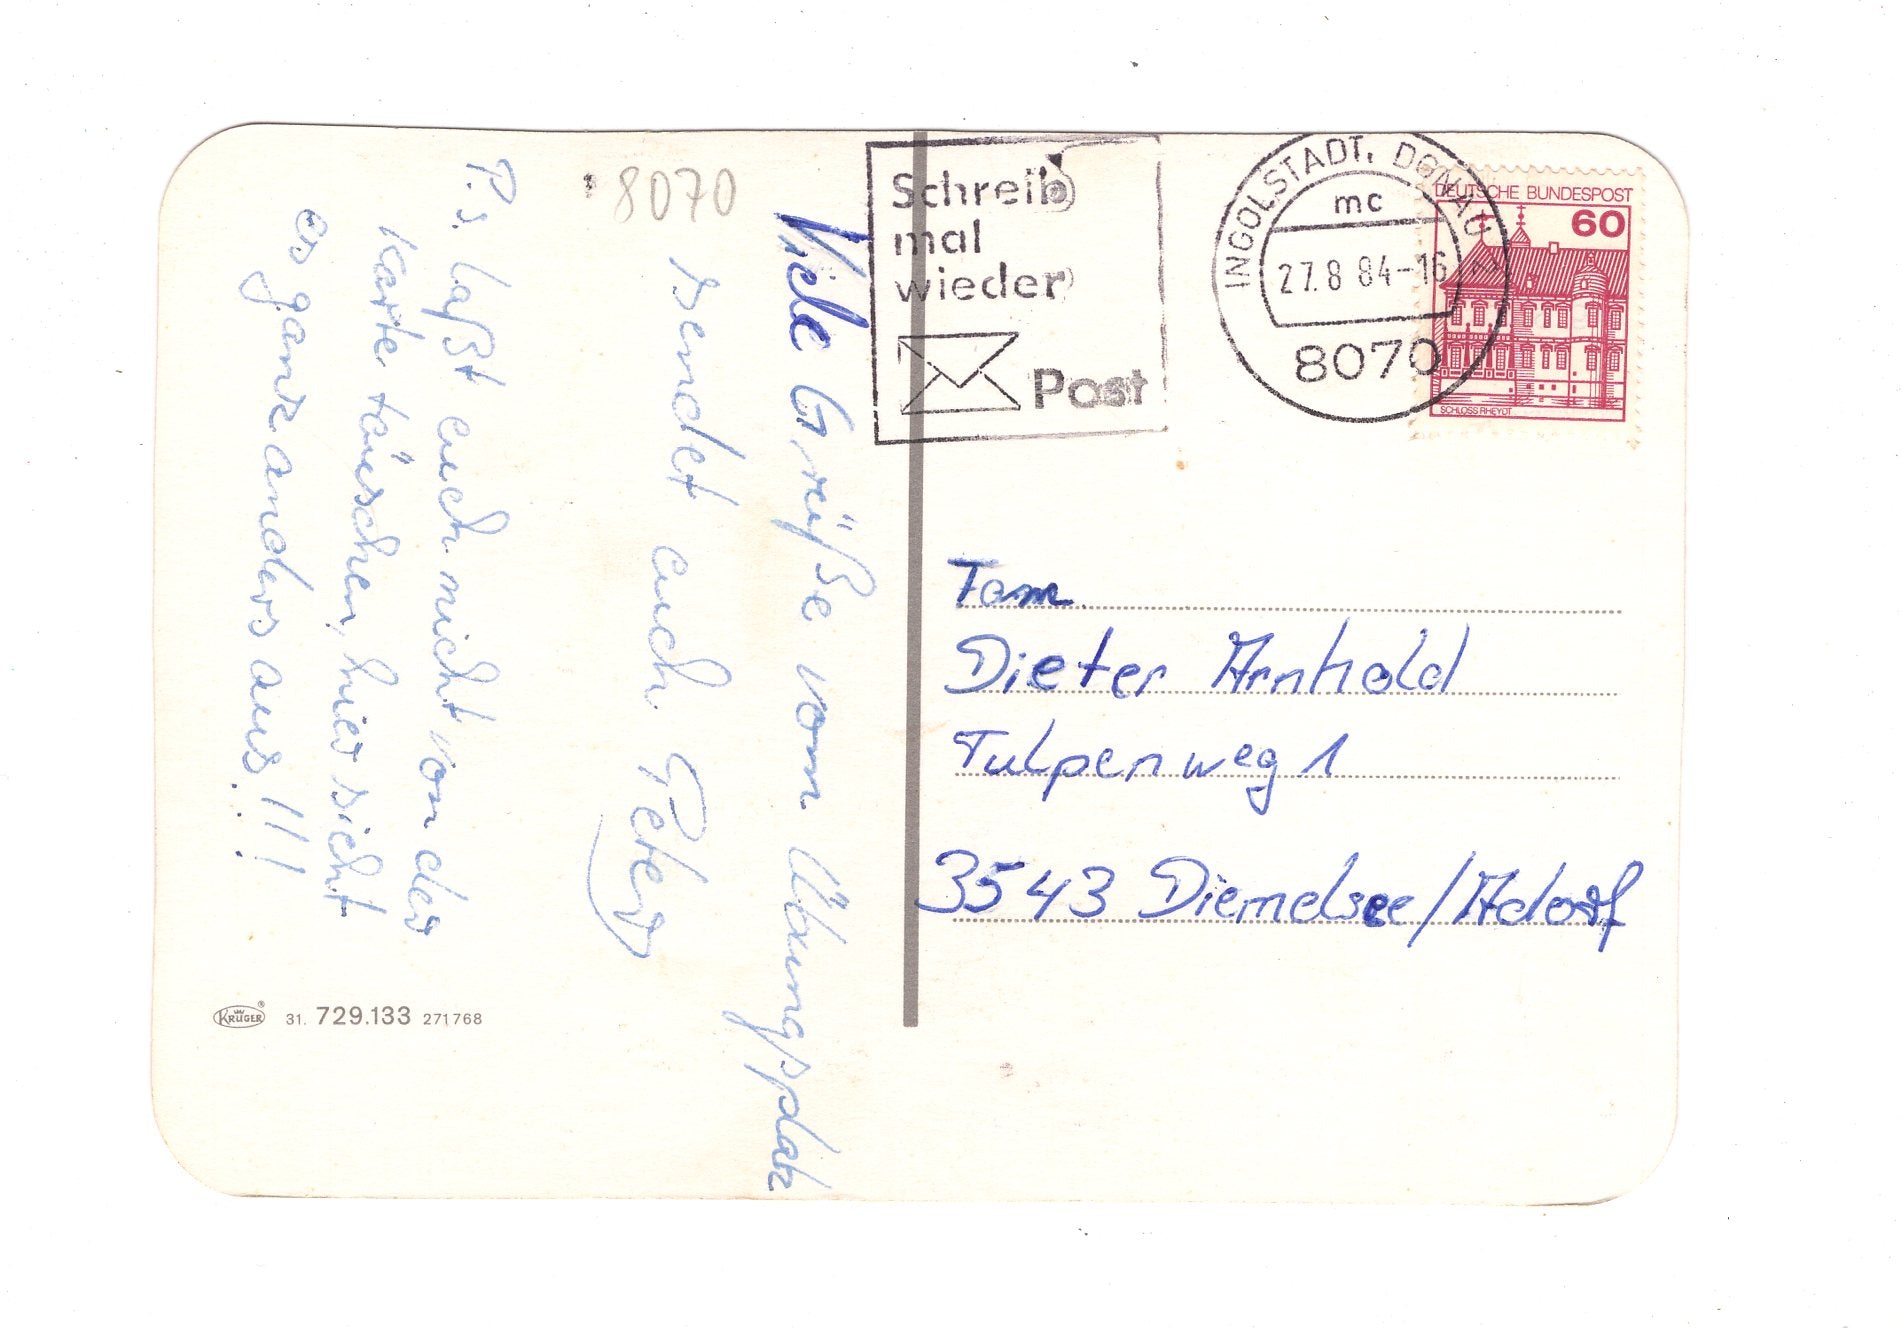 8070
Viele Grüße vom Übungsplatz
sendet euch Peter
P.s. laßt euch nicht von der
Karte täuschen, hier sieht
es ganz anders aus!!!
KRÜGER® 31. 729.133 271768
Schreib
mal
wieder
Post
INGOLSTADT, DONAU 1
mc
27.8 84-16
8070
DEUTSCHE BUNDESPOST
60
SCHLOSS RHEYDT
Fam.
Dieter Arnhold
Tulpenweg 1
3543 Diemelsee/Adorf